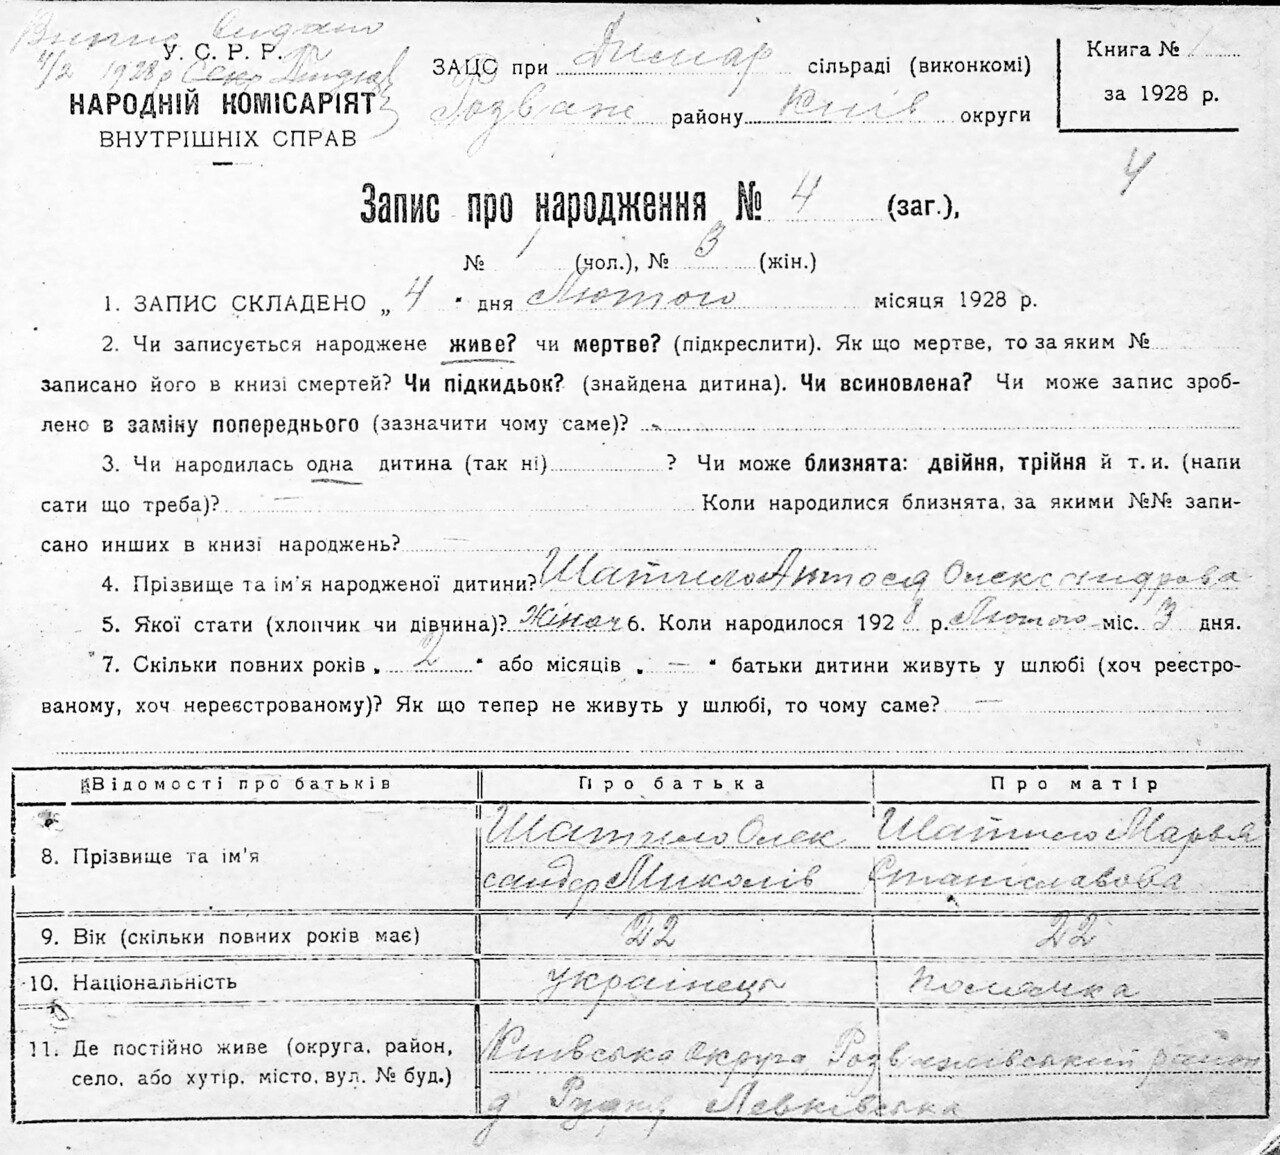 Видано
У. С. Р. Р.
4/2 1928 р Секр
НАРОДНІЙ КОМІСАРІЯТ
ВНУТРІШНІХ СПРАВ
ЗАЦС при Димар сільраді (виконкомі)
Розваж району Київ округи
Книга № 1
за 1928 р.
4
Запис про народження № 4 (заг.),
№ 1 (чол.), № 3 (жін.)
1. ЗАПИС СКЛАДЕНО „ 4 " дня Лютого місяця 1928 р.
2. Чи записується народжене живе? чи мертве? (підкреслити). Як що мертве, то за яким №
записано його в книзі смертей? Чи підкидьок? (знайдена дитина). Чи всиновлена? Чи може запис зроб-
лено в заміну попереднього (зазначити чому саме)?
3. Чи народилась одна дитина (так ні) ? Чи може близнята: двійня, трійня й т. и. (напи
сати що треба)? — Коли народилися близнята, за якими №№ запи-
сано инших в книзі народжень? —
4. Прізвище та ім'я народженої дитини? Шатило Антося Олександрова
5. Якої стати (хлопчик чи дівчина)? Жіноч 6. Коли народилося 1928 р. Лютого міс. 3 дня.
7. Скільки повних років „ 2 " або місяців „ — " батьки дитини живуть у шлюбі (хоч реєстро-
ваному, хоч нереєстрованому)? Як що тепер не живуть у шлюбі, то чому саме? —
Відомості про батьків Про батька Про матір
8. Прізвище та ім'я
Шатило Олек
сандер Миколів
Шатило Марья
Станіславова
9. Вік (скільки повних років має) 22 22
10. Національність українець полячка
11. Де постійно живе (округа, район,
село, або хутір, місто, вул. № буд.)
Київська Округа, Розважівський район
д Рудня Левківська